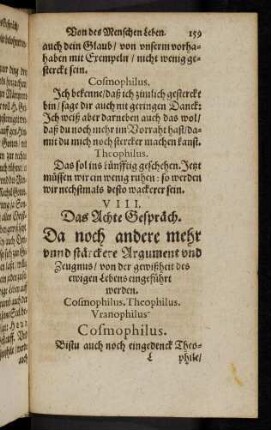 Von des Menschen Leben. 159
auch dein Glaub / von vnserm vorha-
haben mit Exempeln / nicht wenig ge-
sterckt sein.
Cosmophilus.
Ich bekenne / daß ich zimlich gesterckt
bin / sage dir auch nit geringen Danck:
Ich weiß aber darneben auch das wol /
daß du noch mehr im Vorraht hast / da-
mit du mich noch stercker machen kanst.
Theophilus.
Das sol ins künfftig geschehen. Jetzt
müssen wir ein wenig ruhen: so werden
wir nechstmals desto wackerer sein.
VIII.
Das Achte Gespräch.
Da noch andere mehr
vnnd stärckere Argument vnd
Zeugnus / von der gewißheit des
ewigen Lebens eingeführt
werden.
Cosmophilus. Theophilus.
Vranophilus
Cosmophilus.
Bistu auch noch eingedenck Theo-
L phile /